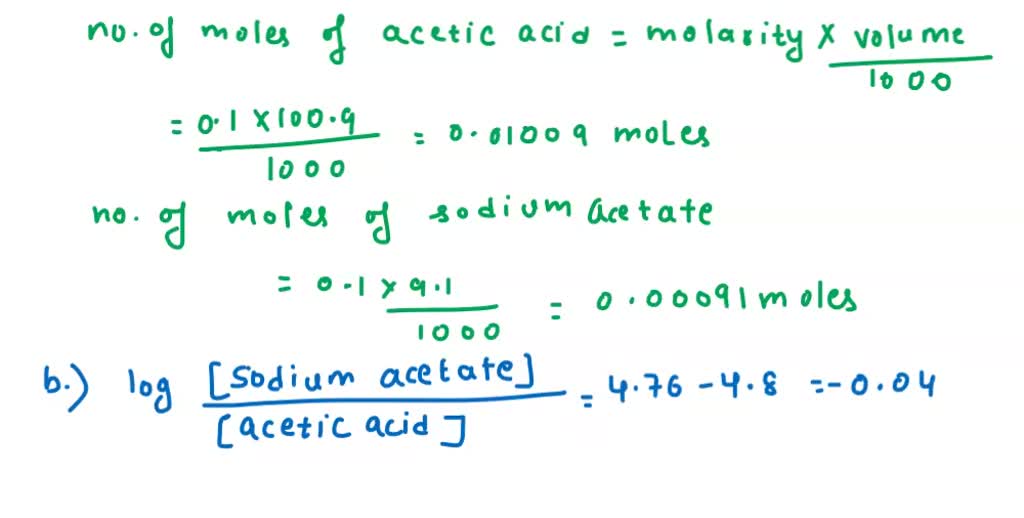 no. of moles of acetic acid = molarity × volume / 1000
= 0.1 × 100.9 / 1000 = 0.01009 moles
no. of moles of sodium acetate
= 0.1 × 9.1 / 1000 = 0.00091 moles
b.) log [sodium acetate] / [acetic acid] = 4.76 - 4.8 = -0.04